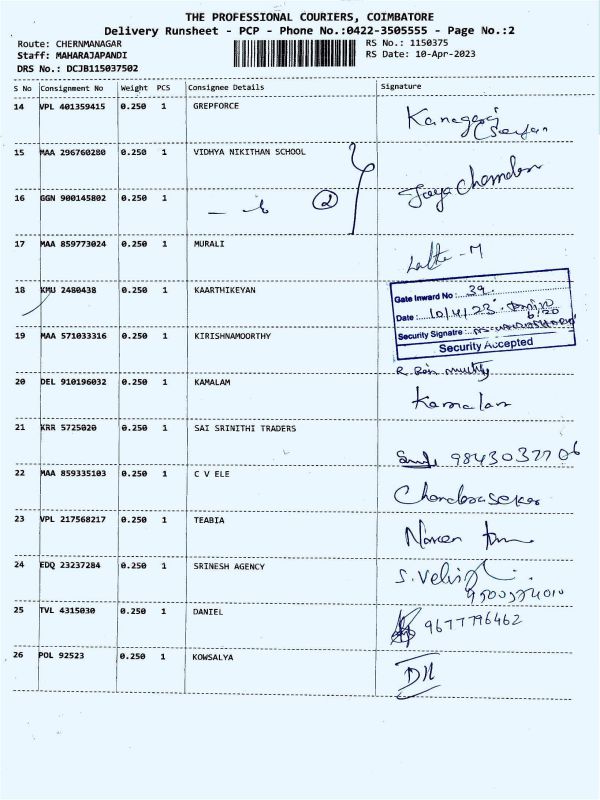 THE PROFESSIONAL COURIERS, COIMBATORE
Delivery Runsheet - PCP - Phone No.:0422-3505555 - Page No.:2
Route: CHERNMANAGAR
RS No.: 1150375
Staff: MAHARAJAPANDI
RS Date: 10-Apr-2023
DRS No.: DCJB115037502
S No Consignment No Weight PCS Consignee Details Signature
14 VPL 401359415 0.250 1 GREPFORCE
Kanagaraj
15 MAA 296760280 0.250 1 VIDHYA NIKITHAN SCHOOL
Jaya Chandran
16 GGN 900145802 0.250 1
2
17 MAA 859773024 0.250 1 MURALI
18 KMU 2480438 0.250 1 KAARTHIKEYAN
Gate Inward No : 39
Date : 10/4/23
6:20
Security Signatre :
Security Accepted
19 MAA 571033316 0.250 1 KIRISHNAMOORTHY
20 DEL 910196032 0.250 1 KAMALAM
Kamalam
21 KRR 5725020 0.250 1 SAI SRINITHI TRADERS
9843037706
22 MAA 859335103 0.250 1 C V ELE
Chandrasekar
23 VPL 217568217 0.250 1 TEABIA
Naveen
24 EDQ 23237284 0.250 1 SRINESH AGENCY
25 TVL 4315030 0.250 1 DANIEL
9677796462
26 POL 92523 0.250 1 KOWSALYA